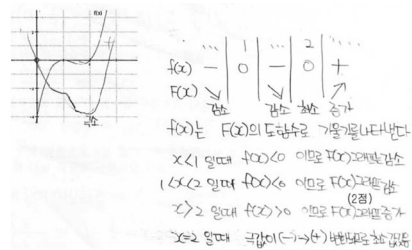 f(x)
극소
… | 1 | … | 2 | …
f(x) − | 0 | − | 0 | +
F(x) ↘ ↘ ↗
감소 감소 최소 증가
f(x)는 F(x)의 도함수로 기울기를 나타낸다
x<1 일때 f(x)<0 이므로 F(x)그래프 감소
1<x<2 일때 f(x)<0 이므로 F(x)그래프 감소
(2점)
x>2 일때 f(x)>0 이므로 F(x)그래프 증가
x=2 일때 (−)→(+)